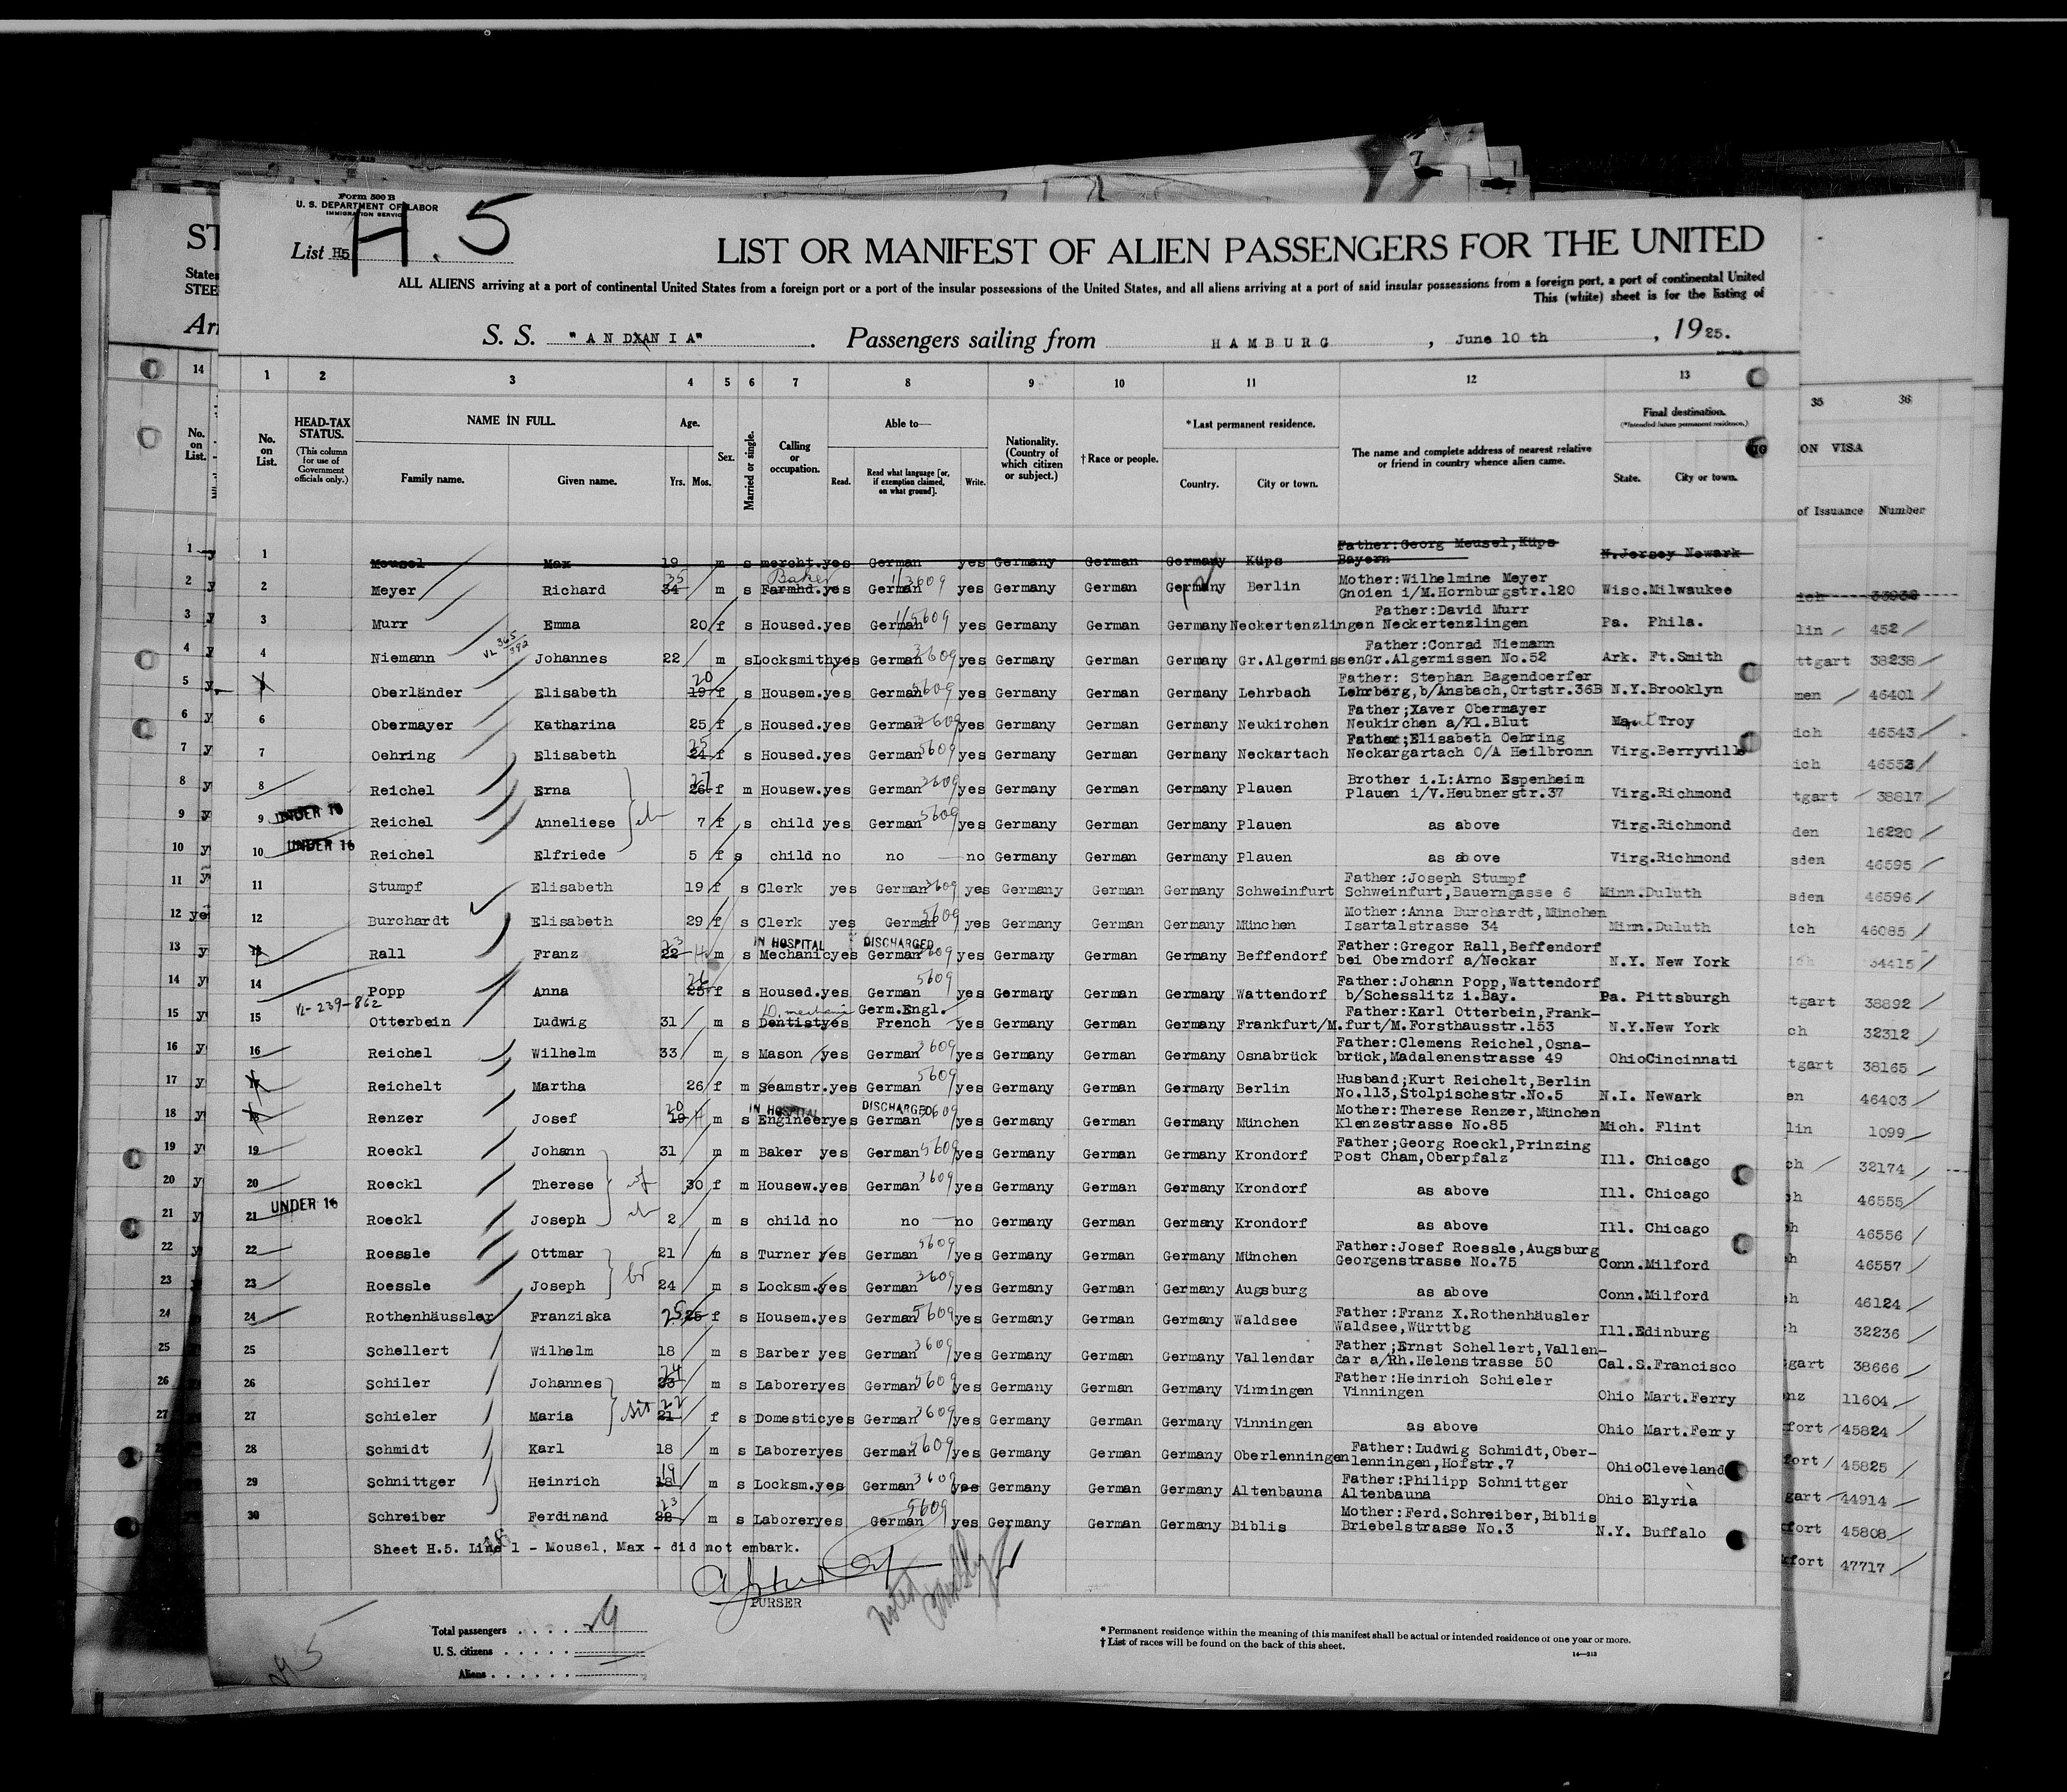 Form 500 B
U. S. DEPARTMENT OF LABOR
IMMIGRATION SERVICE
H. 5
List H5
LIST OR MANIFEST OF ALIEN PASSENGERS FOR THE UNITED
ALL ALIENS arriving at a port of continental United States from a foreign port or a port of the insular possessions of the United States, and all aliens arriving at a port of said insular possessions from a foreign port, a port of continental United
This (white) sheet is for the listing of
S. S. "ANDANIA". Passengers sailing from HAMBURG, June 10 th, 1925.
1 2 3 4 5 6 7 8 9 10 11 12 13
HEAD-TAX STATUS. (This column for use of Government officials only.)
NAME IN FULL. Age. Able to— * Last permanent residence. Final destination. (*Intended future permanent residence.)
No. on List. Family name. Given name. Yrs. Mos. Sex. Married or single. Calling or occupation. Read. Read what language [or, if exemption claimed, on what ground]. Write. Nationality. (Country of which citizen or subject.) † Race or people. Country. City or town. The name and complete address of nearest relative or friend in country whence alien came. State. City or town.
35 36
ON VISA
of Issuance Number
1 Mousel Max 19 m s mercht. yes German yes Germany German Germany Küps Father:Georg Meusel,Küps Bayern N.Jersey Newark
2 Meyer Richard 34 35 m s Farmhd. Baker yes German 3609 yes Germany German Germany Berlin Mother:Wilhelmine Meyer Gnoien i/M.Hornburgstr.120 Wisc.Milwaukee
3 Murr Emma 20 f s Housed. yes German 5609 yes Germany German Germany Neckertenzlingen Father:David Murr Neckertenzlingen Pa. Phila.
4 Niemann VL 365/392 Johannes 22 m s Locksmith yes German 3609 yes Germany German Germany Gr.Algermissen Father:Conrad Niemann Gr.Algermissen No.52 Ark. Ft.Smith
5 Oberländer Elisabeth 19 20 f s Housem. yes German 5609 yes Germany German Germany Lehrbach Father: Stephan Bagendoerfer Lehrberg,b/Ansbach,Ortstr.36B N.Y.Brooklyn
6 Obermayer Katharina 25 f s Housed. yes German 3609 yes Germany German Germany Neukirchen Father;Xaver Obermayer Neukirchen a/Kl.Blut Troy
7 Oehring Elisabeth 24 25 f s Housed. yes German 5609 yes Germany German Germany Neckartach Father;Elisabeth Oehring Neckargartach O/A Heilbronn Virg.Berryville
8 Reichel Erna 26 27 f m Housew. yes German 3609 yes Germany German Germany Plauen Brother i.L:Arno Espenheim Plauen i/V.Heubnerstr.37 Virg.Richmond
9 UNDER 16 Reichel Anneliese 7 f s child yes German 5609 yes Germany German Germany Plauen as above Virg.Richmond
10 UNDER 16 Reichel Elfriede 5 f s child no no no Germany German Germany Plauen as above Virg.Richmond
11 Stumpf Elisabeth 19 f s Clerk yes German 3609 yes Germany German Germany Schweinfurt Father:Joseph Stumpf Schweinfurt,Bauerngasse 6 Minn.Duluth
12 Burchardt Elisabeth 29 f s Clerk yes German 5609 yes Germany German Germany München Mother:Anna Burchardt,München Isartalstrasse 34 Minn.Duluth
13 Rall Franz 22 23 m s IN HOSPITAL DISCHARGED Mechanic yes German 3609 yes Germany German Germany Beffendorf Father:Gregor Rall,Beffendorf bei Oberndorf a/Neckar N.Y. New York
14 Popp Anna 25 26 f s Housed. yes German 5609 yes Germany German Germany Wattendorf Father:Johann Popp,Wattendorf b/Schesslitz i.Bay. Pa. Pittsburgh
15 VL-239-862 Otterbein Ludwig 31 m s Dentist mechanic yes Germ.Engl. French yes Germany German Germany Frankfurt/M. Father:Karl Otterbein,Frank- furt/M.Forsthausstr.153 N.Y.New York
16 Reichel Wilhelm 33 m s Mason yes German 3609 yes Germany German Germany Osnabrück Father:Clemens Reichel,Osna- brück,Madalenenstrasse 49 OhioCincinnati
17 Reichelt Martha 26 f m Seamstr. yes German 5609 yes Germany German Germany Berlin Husband;Kurt Reichelt,Berlin No.113,Stolpischestr.No.5 N.I. Newark
18 Renzer Josef 19 20 m s IN HOSPITAL DISCHARGED Engineer yes German 3609 yes Germany German Germany München Mother:Therese Renzer,München Klenzestrasse No.85 Mich. Flint
19 Roeckl Johann 31 m m Baker yes German 5609 yes Germany German Germany Krondorf Father;Georg Roeckl,Prinzing Post Cham,Oberpfalz Ill. Chicago
20 Roeckl Therese wf 30 f m Housew. yes German 3609 yes Germany German Germany Krondorf as above Ill. Chicago
21 UNDER 16 Roeckl Joseph ch 2 m s child no no no Germany German Germany Krondorf as above Ill. Chicago
22 Roessle Ottmar 21 m s Turner yes German 5609 yes Germany German Germany München Father:Josef Roessle,Augsburg Georgenstrasse No.75 Conn.Milford
23 Roessle Joseph br 24 m s Locksm. yes German 3609 yes Germany German Germany Augsburg as above Conn.Milford
24 Rothenhäussler Franziska 25 f s Housem. yes German 5609 yes Germany German Germany Waldsee Father:Franz X.Rothenhäusler Waldsee,Württbg Ill.Edinburg
25 Schellert Wilhelm 18 m s Barber yes German 3609 yes Germany German Germany Vallendar Father;Ernst Schellert,Vallen- dar a/Rh.Helenstrasse 50 Cal.S.Francisco
26 Schiler Johannes 23 24 m s Laborer yes German 5609 yes Germany German Germany Vinningen Father:Heinrich Schieler Vinningen Ohio Mart.Ferry
27 Schieler Maria sis 21 22 f s Domestic yes German 3609 yes Germany German Germany Vinningen as above Ohio Mart.Ferry
28 Schmidt Karl 18 m s Laborer yes German 5609 yes Germany German Germany Oberlenningen Father:Ludwig Schmidt,Ober- lenningen,Hofstr.7 OhioCleveland
29 Schnittger Heinrich 18 19 m s Locksm. yes German 3609 yes Germany German Germany Altenbauna Father:Philipp Schnittger Altenbauna Ohio Elyria
30 Schreiber Ferdinand 22 23 m s Laborer yes German 5609 yes Germany German Germany Biblis Mother:Ferd.Schreiber,Biblis Briebelstrasse No.3 N.Y. Buffalo
Sheet H.5. Line 1 - Mousel, Max - did not embark.
PURSER
Total passengers . . . . . 29
U. S. citizens . . . . . .
Aliens . . . . . .
* Permanent residence within the meaning of this manifest shall be actual or intended residence of one year or more.
† List of races will be found on the back of this sheet.
14—212
ich 33938
lin 452
ttgart 38238
men 46401
ich 46543
ich 46553
tgart 38817
den 16220
sden 46595
sden 46596
ich 46085
34415
tgart 38892
ch 32312
tgart 38165
en 46403
lin 1099
ch 32174
h 46555
h 46556
h 46557
h 46124
h 32236
gart 38666
nz 11604
fort 45824
fort 45825
gart 44914
fort 45808
kfort 47717
ST
States
STEE
Arr
14
No. on List.